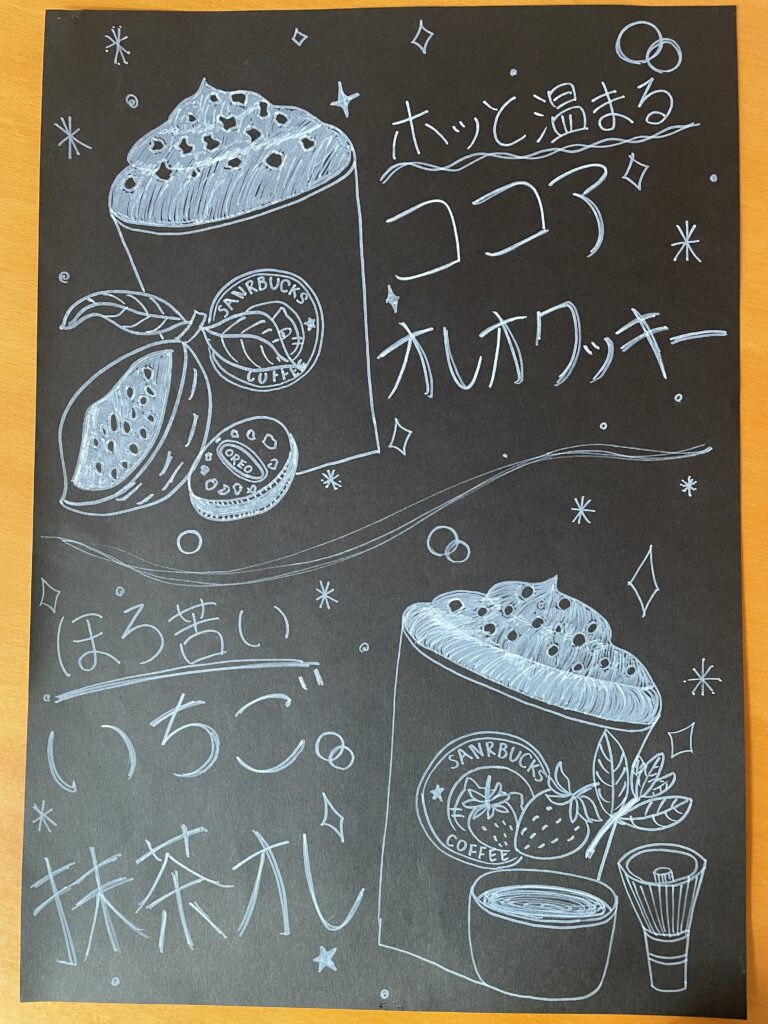 ホッと温まる
ココア
オレオクッキー
SANRBUCKS
COFFEE
OREO
ほろ苦い
いちご
抹茶オレ
SANRBUCKS
COFFEE